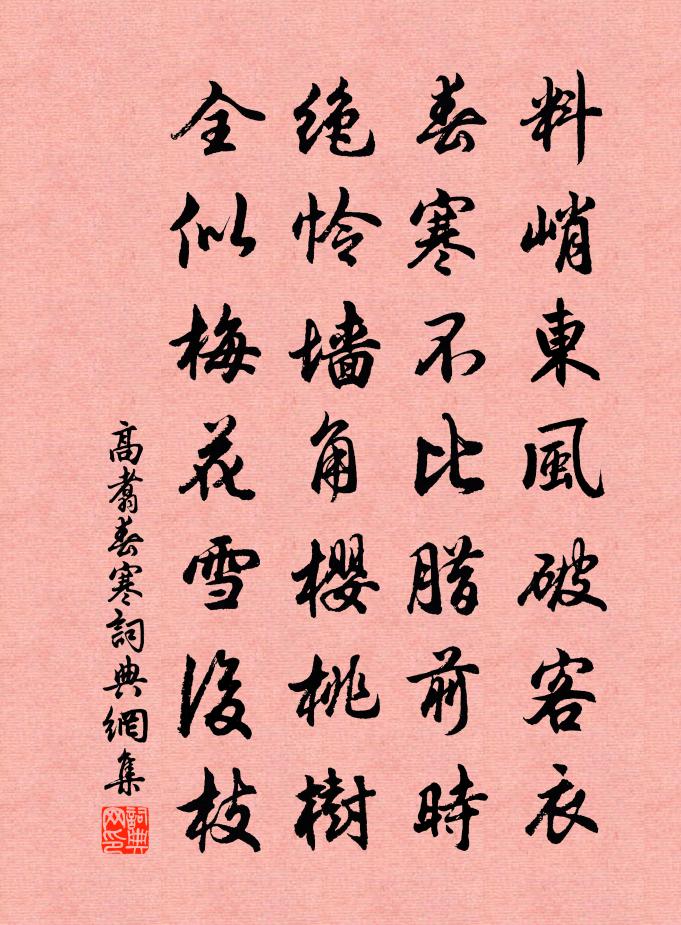 料峭東風破客衣
春寒不比腊前時
絶怜墻角櫻桃樹
全似梅花雪後枝
高翥春寒詞典網集
詞典
网印